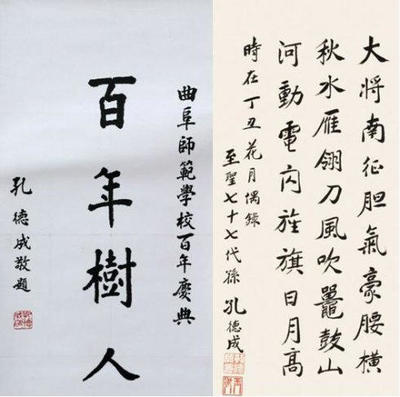 曲阜師範學校百年慶典
百年樹人
孔德成敬題
大將南征胆氣豪腰橫
秋水雁翎刀風吹鼉鼓山
河動電閃旌旗日月高
時在丁丑花月偶錄
至聖七十七代孫孔德成